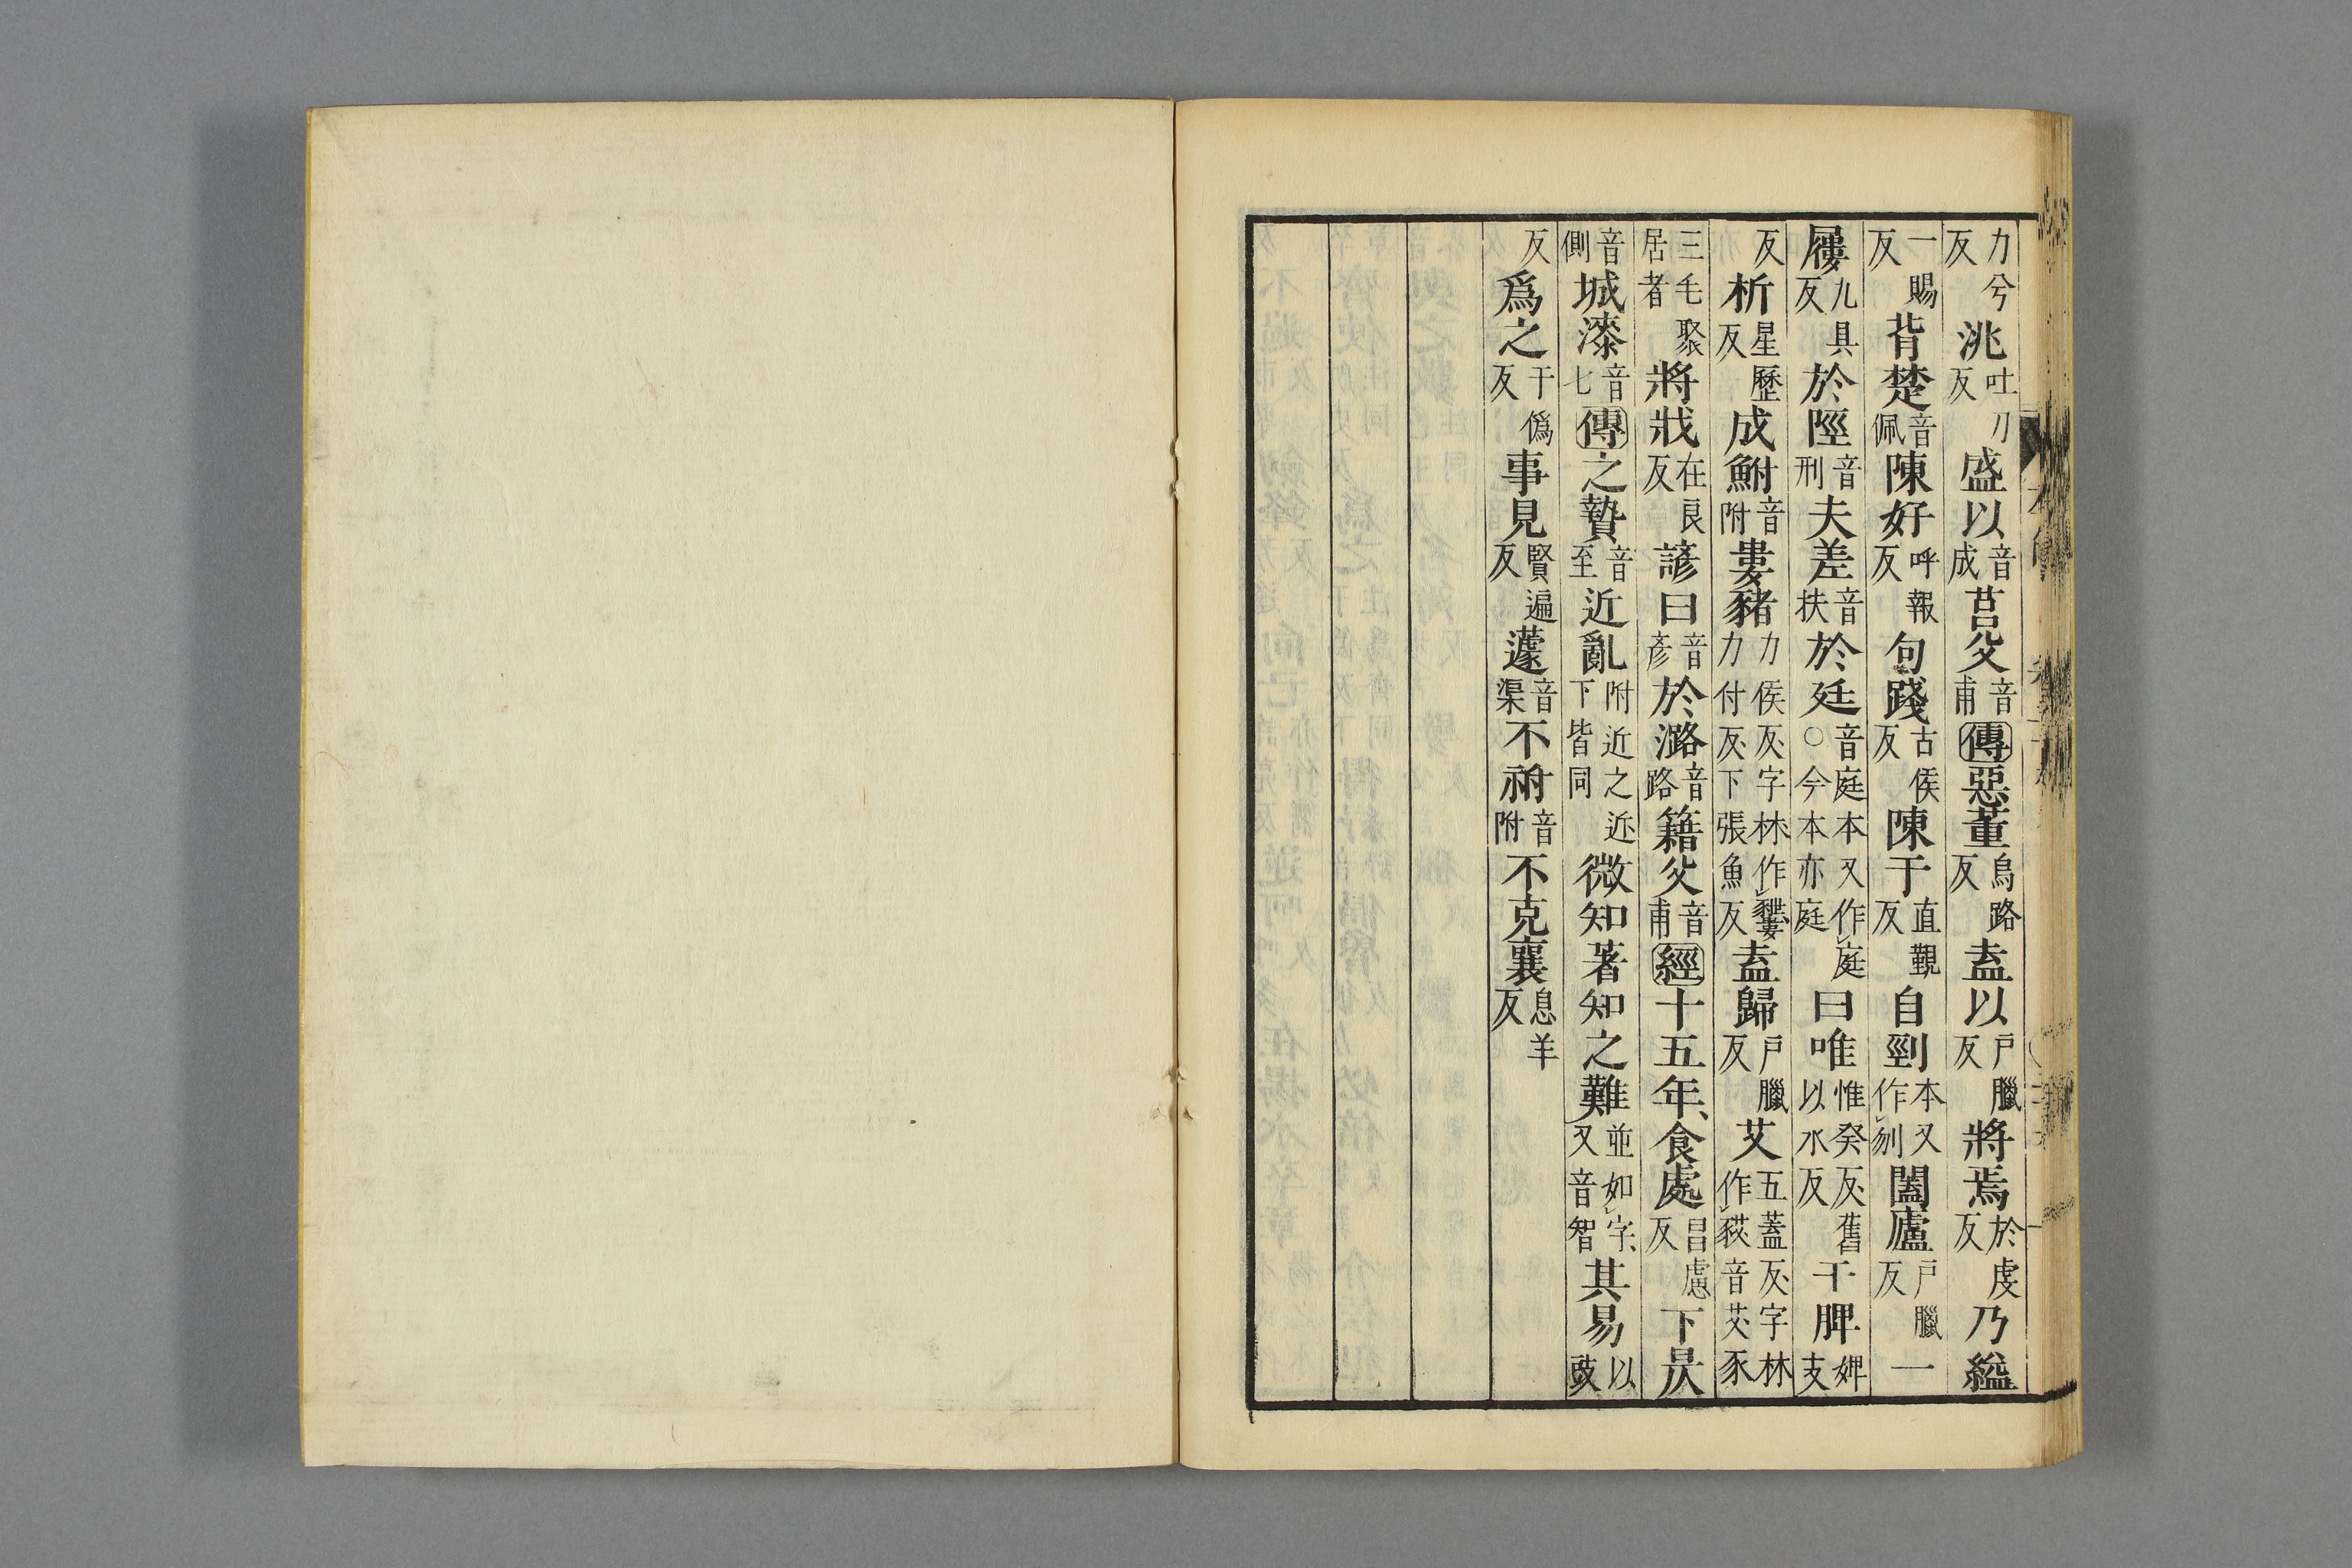 力兮反洮吐刀反盛以音成莒父音甫傳惡董烏路反盍以戶臘反將焉於虔反乃縊
一賜反背楚音佩陳好呼報反句踐古侯反陳于直覲反自剄本又作刎闔廬戶臘反一
屨九具反於陘音刑夫差音扶於廷音庭本又作庭○今本亦庭曰唯惟癸反舊以水反干脾婢支
反析星歷反成鮒音附婁豬力侯反字林作䝏力付反下張魚反盍歸戶臘反艾五蓋反字林作音艾豕
三毛聚居者將戕在良反諺曰音彥於潞音路籍父音甫經十五年、食處昌慮反下昃
音側城漆音七傳之贄音至近亂附近之近下皆同微知著知之難並如字又音智其易以豉
反爲之于僞反事見賢遍反蘧音渠不祔音附不克襄息羊反